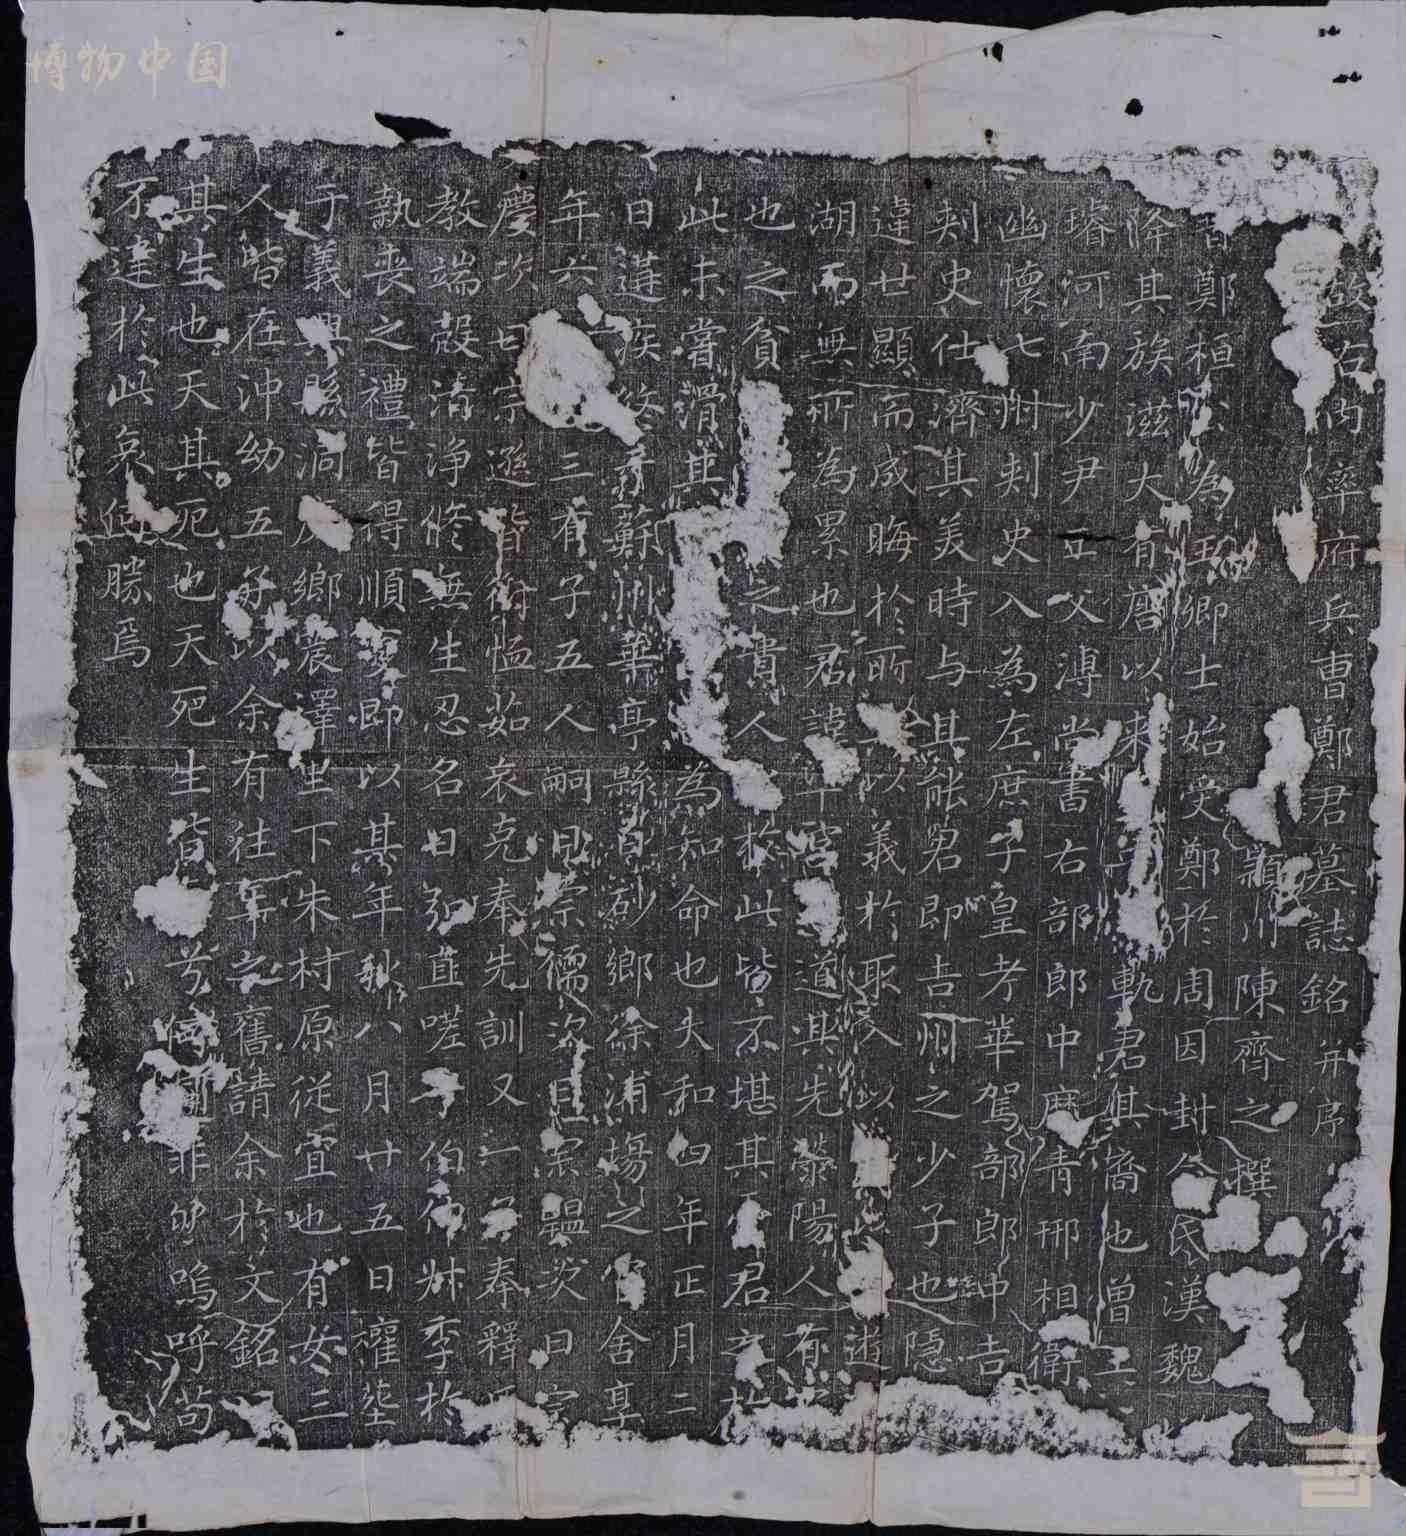 博物中国
故右內率府兵曹鄭君墓誌銘并序
潁川陳齊之撰
昔鄭桓公為王卿士始受鄭於周因封命氏漢魏
降其族滋大有唐以來軌君其裔也曾王
璿河南少尹王父溥尚書右部郎中歷青邢相衛
幽懷七州刺史入為左庶子皇考華駕部郎中吉
州刺史仕濟其美時与其能君即吉州之少子也隱
違世顯而成晦於所以義於取友以逝
湖而無所為累也君諱道其先滎陽人有
也之貧之貴人於此皆不堪其君之於
此未嘗滑其為知命也大和四年正月二
日遘疾終于蘇州華亭縣白砂鄉徐浦場之官舍享
年六三有子五人嗣曰宗儒次曰宗韞次曰宗
慶次曰宗遜皆銜恤茹哀克奉先訓又一男奉釋
教端愨清淨修無生忍名曰弘直嗟乎伯仲叔季於
執喪之禮皆得順變即以其年秋八月廿五日權葬
于義興縣洞鄉震澤里下朱村原從宜也有女三
人皆在沖幼五女以余有往年之舊請余於文銘
其生也天其死也天死生皆兮何非嗚呼苟
不達於此哀何勝焉